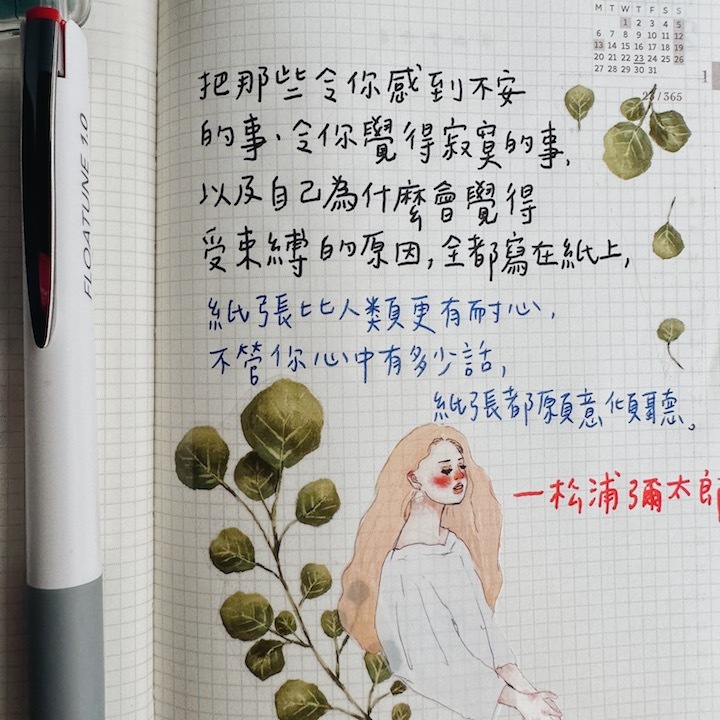 M T W T F S S
1 2 3 4 5
6 7 8 9 10 11 12
13 14 15 16 17 18 19
20 21 22 23 24 25 26
27 28 29 30 31
1
23/365
把那些令你感到不安
的事、令你覺得寂寞的事,
以及自己為什麼會覺得
受束縛的原因,全都寫在紙上,
紙張比人類更有耐心,
不管你心中有多少話,
紙張都願意傾聽。
—松浦彌太郎
FLOATUNE 1.0